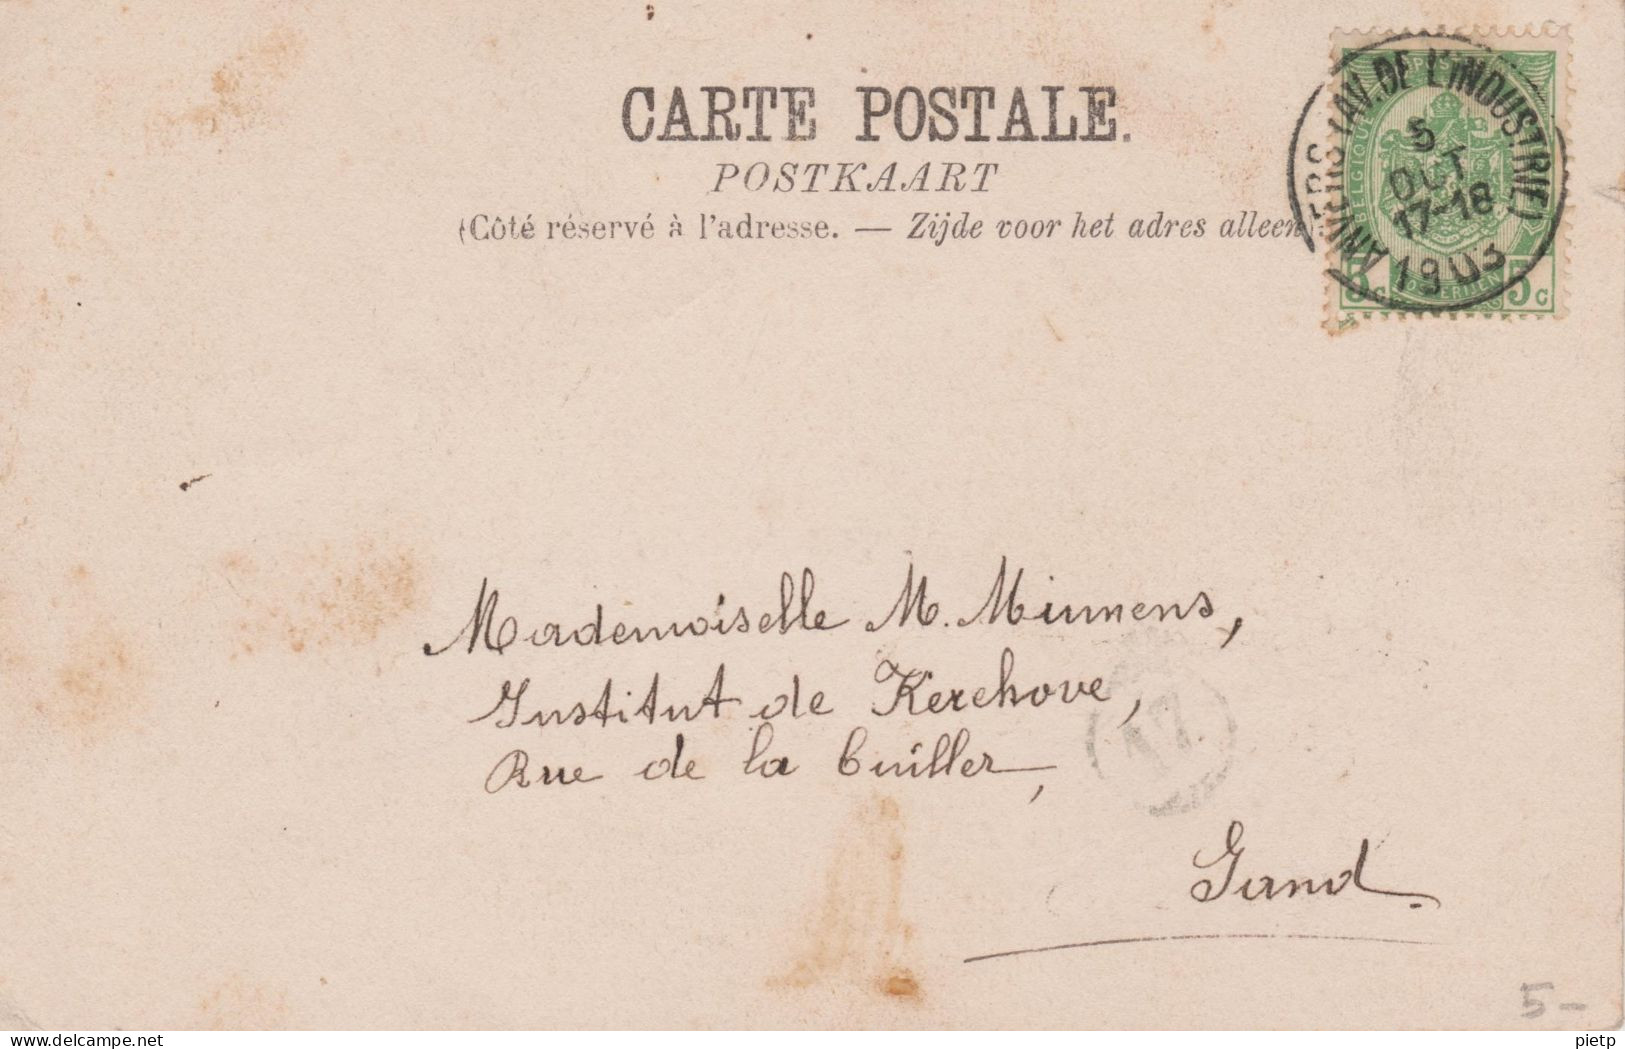 CARTE POSTALE.
POSTKAART
(Côté réservé à l'adresse. — Zijde voor het adres alleen)
ANVERS (AV. DE L'INDUSTRIE)
5
OCT
17-18
1903
BELGIQUE
5 c 5 c
Mademoiselle M. Mimmens,
Institut de Kerchove,
Rue de la Cuiller,
Gand.
5 –
delcampe.net
pietp